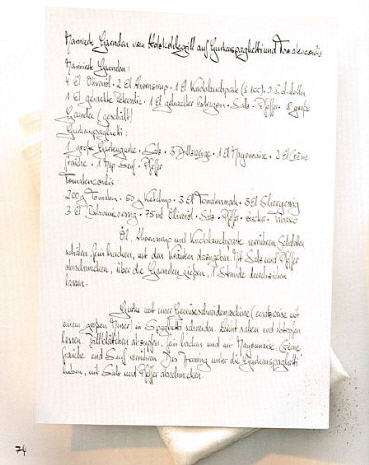 Marinierte Garnelen vom Holzkohlegrill auf Gurkenspaghetti und Tomatencoulis
Marinierte Garnelen:
4 El Olivenöl · 2 El Ahornsirup · 1 El Knoblauchpaste (S. 100) · 3 Schalotten
1 El gehackte Petersilie · 1 El gehackter Estragon · Salz · Pfeffer · 8 große
Garnelen (geschält)
Gurkenspaghetti:
1 große Gartengurke · Salz · 3 Dillzweige · 1 El Mayonnaise · 2 El Crème
fraîche · 1 Msp Senf · Pfeffer
Tomatencoulis:
200g Tomaten · 50g Ketchup · 3 El Tomatenmark · 3 El Sherryessig
3 El Balsamicoessig · 75ml Olivenöl · Salz · Pfeffer · Zucker · Tabasco
Öl, Ahornsirup und Knoblauchpaste verrühren. Schalotten
schälen, fein hacken, mit den Kräutern dazugeben. Mit Salz und Pfeffer
abschmecken, über die Garnelen gießen, 1 Stunde durchziehen
lassen.
Gurke mit einer Gemüseschneidemaschine (ersatzweise mit
einem großen Messer) in Spaghetti schneiden. Leicht salzen und ziehen
lassen. Dillblättchen abzupfen, fein hacken und mit Mayonnaise, Crème
fraîche und Senf verrühren. Das Dressing unter die Gurkenspaghetti
heben, mit Salz und Pfeffer abschmecken.
74